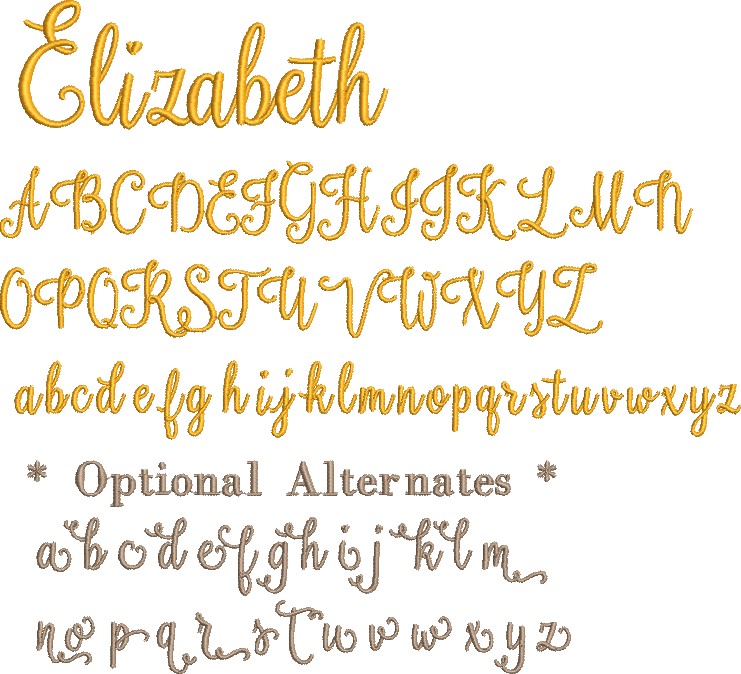 Elizabeth
ABCDEFGHIJKLMN
OPQRSTUVWXYZ
abcdefghijklmnopqrstuvwxyz
* Optional Alternates *
abcdefghijklm
nopqrstuvwxyz